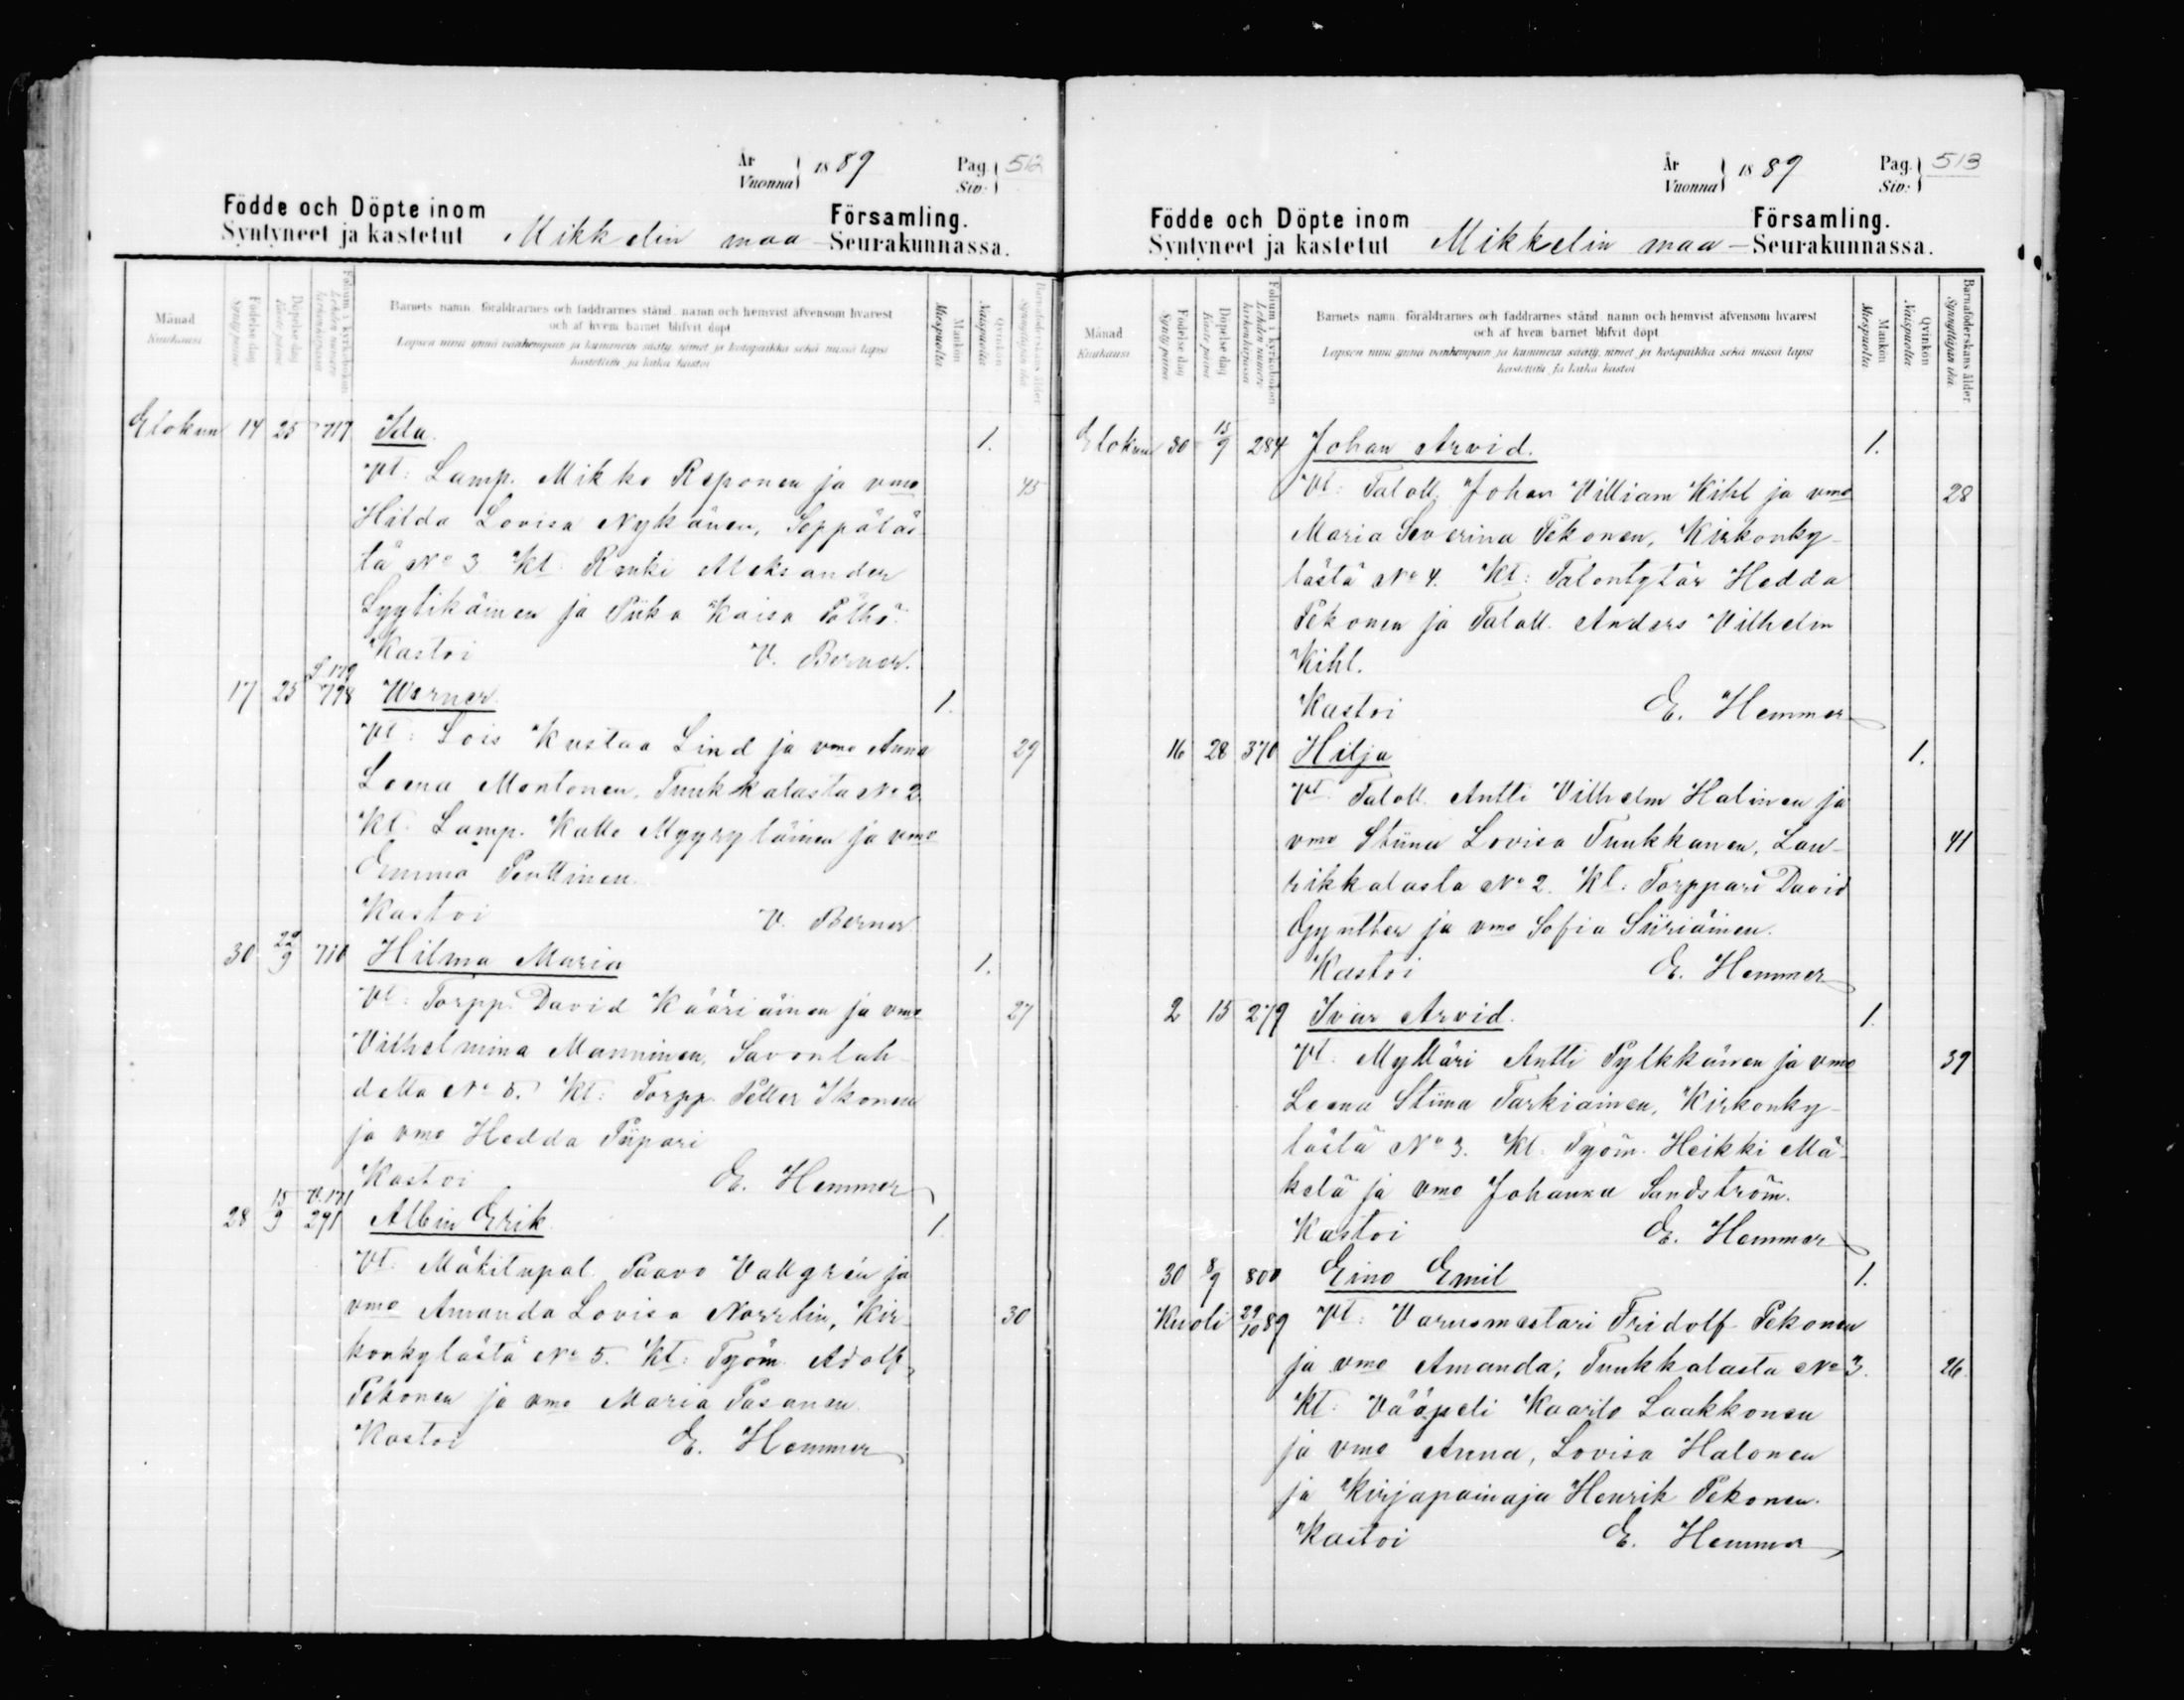 År
Vuonna 1889 Pag. Siv: 512
Födde och Döpte inom Församling.
Syntyneet ja kastetut Mikkelin maa Seurakunnassa.
Månad
Kuukausi
Födelse dag
Syntymäpäivä
Döpelse dag
Kaste päivä
Barnets namn, föräldrarnes och faddrarnes stånd, namn och hemvist äfvensom hvarest
och af hvem barnet blifvit döpt
Lapsen nimi ynnä vanhempain ja kummein sääty, nimet ja kotopaikka sekä missä lapsi
kastettiin ja kuka kastoi
Mankön
Miespuolta
Qvinkön
Naispuolta
Barnaföderskans ålder
Synnyttäjän ikä
Elokuu 14 25 717 Ida 1.
Vt: Lamp. Mikko Reponen ja vmo 45
Hilda Lovisa Nykänen, Seppäläs-
tä No 3 Kt: Renki Aleksander
Lyytikäinen ja Piika Kaisa Pöllö
Kastoi V. Berner.
17 25 798 Werner 1.
Vt: Lois Kustaa Lind ja vmo Anna 29
Leena Montonen, Tuukkalasta No 2.
Kt: Lamp. Kalle Myyryläinen ja vmo
Emma Penttinen.
Kastoi V. Berner
30 22/9 710 Hilma Maria 1.
Vt: Torpp. David Kääriäinen ja vmo 27
Vilhelmina Manninen, Savonlah-
delta No 5. Kt: Torpp. Petter Ikonen
ja vmo Hedda Piipari
Kastoi E. Hemmer
28 15/9 291 Albin Erik 1
Vt: Mäkitupal. Paavo Vallgrén ja
vmo Amanda Lovisa Norrlin, Kir- 30
konkylästä No 5. Kt: Työm. Adolf
Pekonen ja vmo Maria Pasanen
Kastoi E. Hemmer
År
Vuonna 1889 Pag. Siv: 513
Födde och Döpte inom Församling.
Syntyneet ja kastetut Mikkelin maa Seurakunnassa.
Månad
Kuukausi
Födelse dag
Syntymäpäivä
Döpelse dag
Kaste päivä
Barnets namn, föräldrarnes och faddrarnes stånd, namn och hemvist äfvensom hvarest
och af hvem barnet blifvit döpt
Lapsen nimi ynnä vanhempain ja kummein sääty, nimet ja kotopaikka sekä missä lapsi
kastettiin ja kuka kastoi
Mankön
Miespuolta
Qvinkön
Naispuolta
Barnaföderskans ålder
Synnyttäjän ikä
Elokuu 30 15/9 284 Johan Arvid. 1.
Vt: Taloll. Johan Villiam Kihl ja vmo 28
Maria Severina Pekonen, Kirkonky-
lästä No 4. Kt: Talontytär Hedda
Pekonen ja Taloll. Anders Vilhelm
Kihl.
Kastoi E. Hemmer
16 28 370 Hilja 1.
Vt: Taloll. Antti Vilhelm Halinen ja
vmo Stiina Lovisa Tuukkanen, Lau- 41
rikkalasta No 2. Kt: Torppari David
Gynther ja vmo Sofia Siiriäinen.
Kastoi E. Hemmer
2 15 279 Ivar Arvid. 1.
Vt: Mylläri Antti Pylkkänen ja vmo 39
Leena Stiina Tarkiainen, Kirkonky-
lästä No 3. Kt: Työm. Heikki Mä-
kelä ja vmo Johanna Sandström.
Kastoi E. Hemmer
30 8/9 800 Eino Emil 1.
Kuoli 29/10 89 Vt: Varusmestari Fridolf Pekonen
ja vmo Amanda, Tuukkalasta No 3. 26
Kt: Vääpeli Kaarlo Laakkonen
ja vmo Anna, Lovisa Halonen
ja Kirjapainaja Henrik Pekonen.
Kastoi E. Hemmer